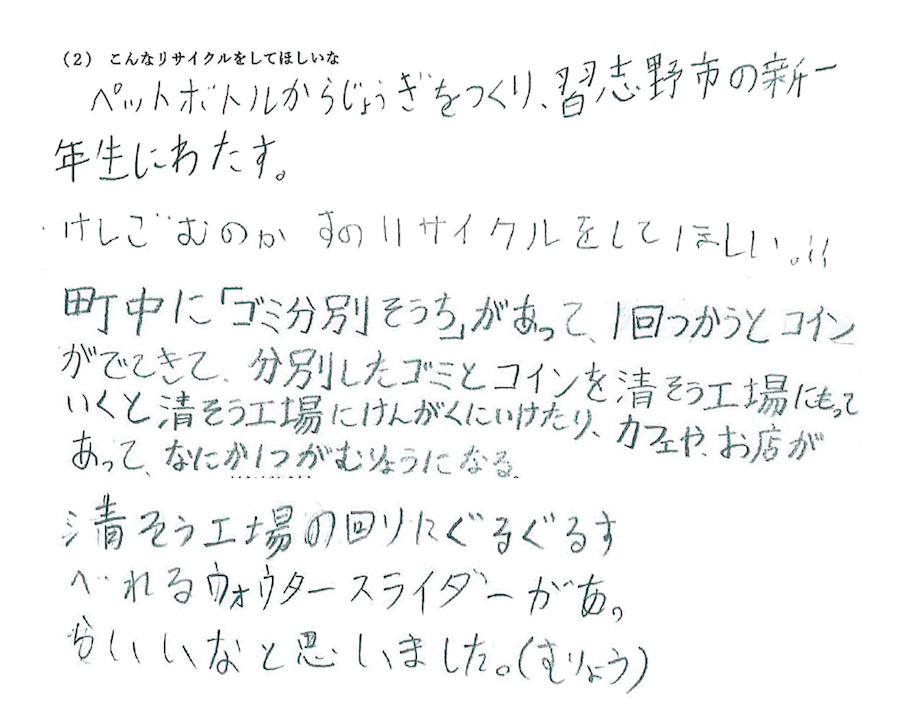 (2) こんなリサイクルをしてほしいな
ペットボトルからじょうぎをつくり、習志野市の新一
年生にわたす。
けしごむのかすのリサイクルをしてほしい。!!
町中に「ゴミ分別そうち」があって、1回つかうとコイン
がでてきて、分別したゴミとコインを清そう工場にもって
いくと清そう工場にけんがくにいけたり、カフェや、お店が
あって、なにか1つがむりょうになる。
清そう工場の回りにぐるぐるす
べれるウォウタースライダーがあっ
らいいなと思いました。(むりょう)